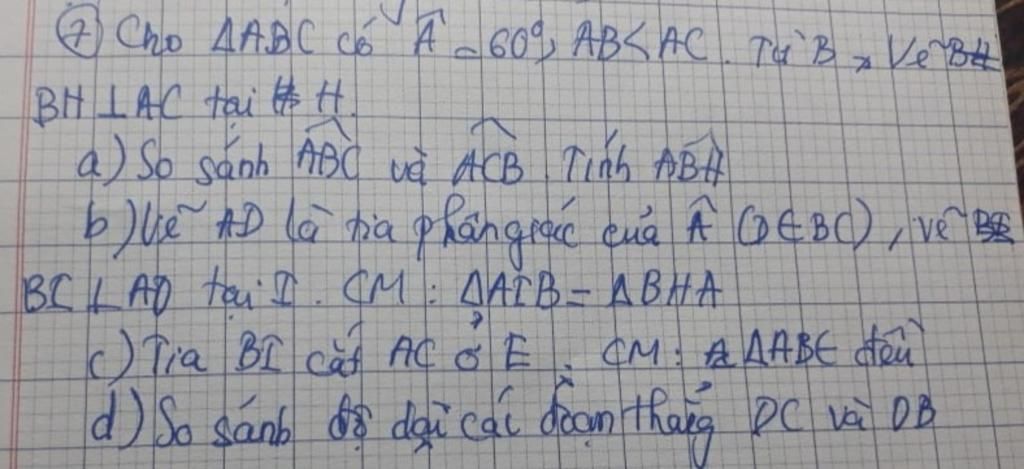 ⑦ Cho ΔABC có Â = 60°, AB < AC. Từ B, Vẽ
BH ⊥ AC tại H.
a) So sánh ABC và ACB. Tính ABH
b) Vẽ AD là tia phân giác của Â (D ∈ BC), vẽ
BI ⊥ AD tại I. CM: ΔAIB = ΔBHA
c) Tia BI cắt AC ở E. CM: ΔABE đều
d) So sánh độ dài các đoạn thẳng DC và DB